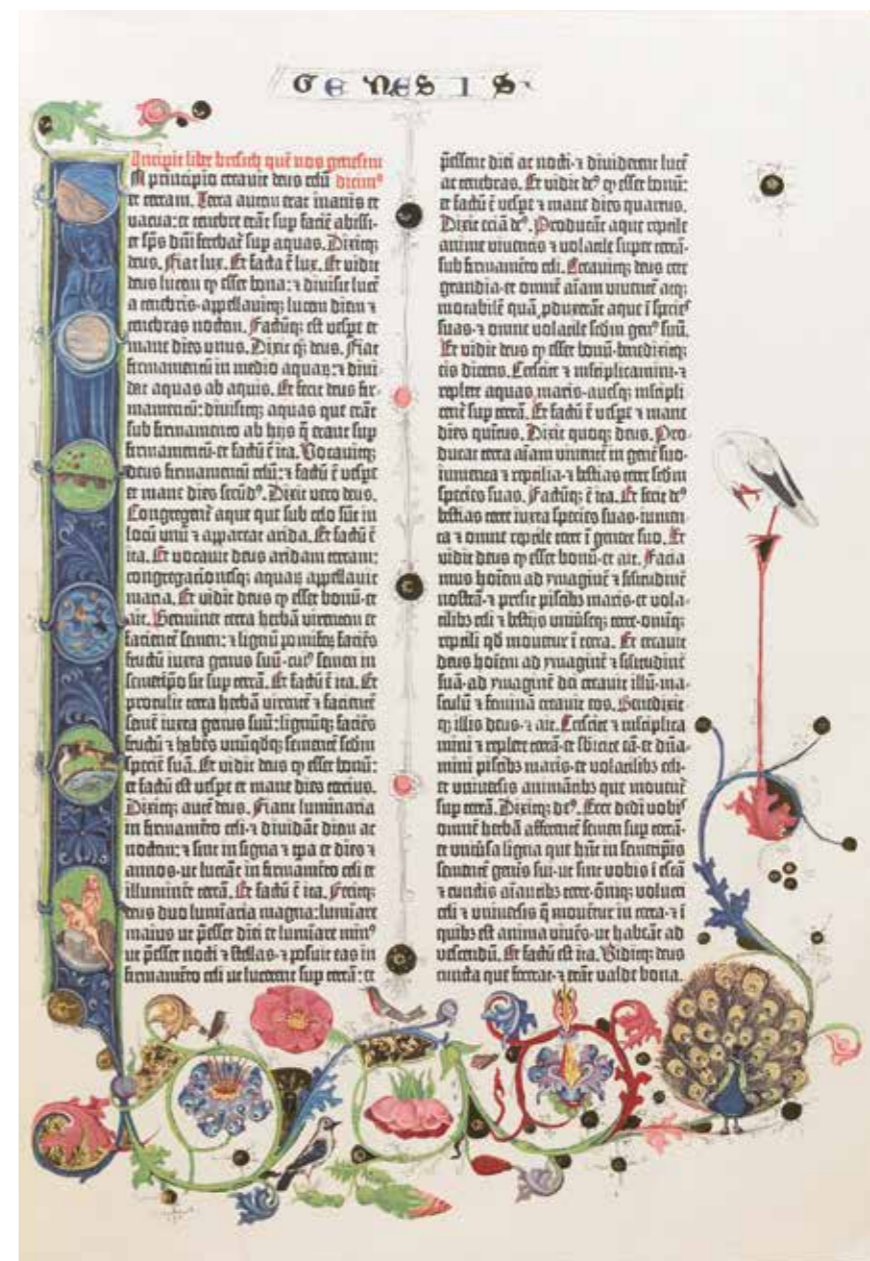 GENESIS
Incipit liber bresich quē nos genesim
In principio creavit deus celū dicimꝰ
et terram. Terra autem erat inanis et
vacua: et tenebre erāt sup faciē abissi:
et spūs dn̄i ferebat̄ sup aquas. Dixitq;
deus. Fiat lux. Et facta ē lux. Et vidit
deus lucem ꝙ esset bona: ⁊ divisit lucē
a tenebris· appellavitq; lucem diem ⁊
tenebras noctem. Factūq; est vespe et
mane dies unus. Dixit qꝫ deus. Fiat
firmamentū in medio aquaꝝ: ⁊ divi⸗
dat aquas ab aquis. Et fecit deus fir⸗
mamentū: divisitq; aquas que erāt
sub firmamento ab hijs q̄ erant sup
firmamentū· et factū ē ita. Vocavitq;
deus firmamentū celū: ⁊ factū ē vespe
et mane dies secūdꝰ. Dixit vero deus.
Congregent̄ aque que sub celo sūt in
locū unū ⁊ appareat arida. Et factū ē
ita. Et vocavit deus aridam terram:
congregacionesq; aquaꝝ appellavit
maria. Et vidit deus ꝙ esset bonū· et
ait. Germinet terra herbā virentem et
facientē semen: ⁊ lignū pomiferū faciēs
fructū iuxta genus suū· cuiꝰ semen in
semetipō sit sup terrā. Et factū ē ita. Et
protulit terra herbā virentē ⁊ facientē
semē iuxta genus suū: lignūq; faciēs
fructū ⁊ habēs unūqdq; sementē scdm
speciē suā. Et vidit deus ꝙ esset bonū:
et factū est vespe et mane dies tercius.
Dixitq; autē deus. Fiant luminaria
in firmamēto celi· ⁊ dividāt diem ac
noctem: ⁊ sint in signa ⁊ tpa et dies ⁊
annos· ut luceāt in firmamēto celi et
illuminēt terrā. Et factū ē ita. Fecitq;
deus duo lumiaria magna: lumiare
maius ut pesset diei et lumiare minꝰ
ut pesset nocti ⁊ stellas· ⁊ posuit eas in
firmamēto celi ut lucerent sup terrā: et
pessent diei ac nocti· ⁊ dividerent lucē
ac tenebras. Et vidit deꝰ ꝙ esset bonū:
et factū ē vespe ⁊ mane dies quartus.
Dixit eciā deꝰ. Producāt aque reptile
anime viventis ⁊ volatile super terrā·
sub firmamēto celi. Creavitq; deus cete
grandia· et omnē aīam viventē atq;
motabilē quā pduxerāt aque ī species
suas· ⁊ omne volatile scdm genꝰ suū.
Et vidit deus ꝙ esset bonū· benedixitq;
eis dicens. Crescite ⁊ mltiplicamini· ⁊
replete aquas maris· avesq; mltipli
cent̄ sup terrā. Et factū ē vespe ⁊ mane
dies quītus. Dixit quoq; deus. Pro⸗
ducat terra aīam viventē in genē suo·
iumenta ⁊ reptilia· ⁊ bestias terre scdm
species suas. Factūq; ē ita. Et fecit deꝰ
bestias terre iuxta species suas· iumen⸗
ta ⁊ omne reptile terre ī genere suo. Et
vidit deus ꝙ esset bonū· et ait. Facia⸗
mus hoīem ad ymaginē ⁊ silitudinē
nostrā· ⁊ presit piscibꝫ maris· et vola⸗
tilibꝫ celi ⁊ bestijs univseq; terre· omniq;
reptili qd movetur ī terra. Et creavit
deus hoīem ad ymaginē ⁊ silitudinē
suā· ad ymaginē dei creavit illū· ma⸗
sculū ⁊ feminā creavit eos. Benedixit⸗
q; illis deus· ⁊ ait. Crescite ⁊ mltiplica⸗
mini ⁊ replete terrā· et sbicite eā· et dn̄a⸗
mini piscibꝫ maris· et volatilibꝫ celi·
et universis animātibꝫ que moventē
sup terrā. Dixitq; deꝰ. Ecce dedi vobis
omnē herbā afferentē semen sup terrā·
et univsa ligna que hn̄t in semetipis
sementē genis sui· ut sint vobis ī escā
⁊ cunctis aīantibꝫ terre· oīniq; volucri
celi ⁊ universis q̄ movētur in terra· ⁊ ī
quibꝫ est anima vivēs· ut habeāt ad
vescendū. Et factū est ita. Viditq; deus
cuncta que fecerat· ⁊ erāt valde bona.